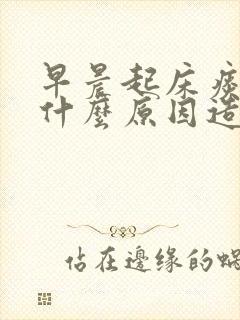 早晨起床痰
什麼原因造
估在邊缘的蝸